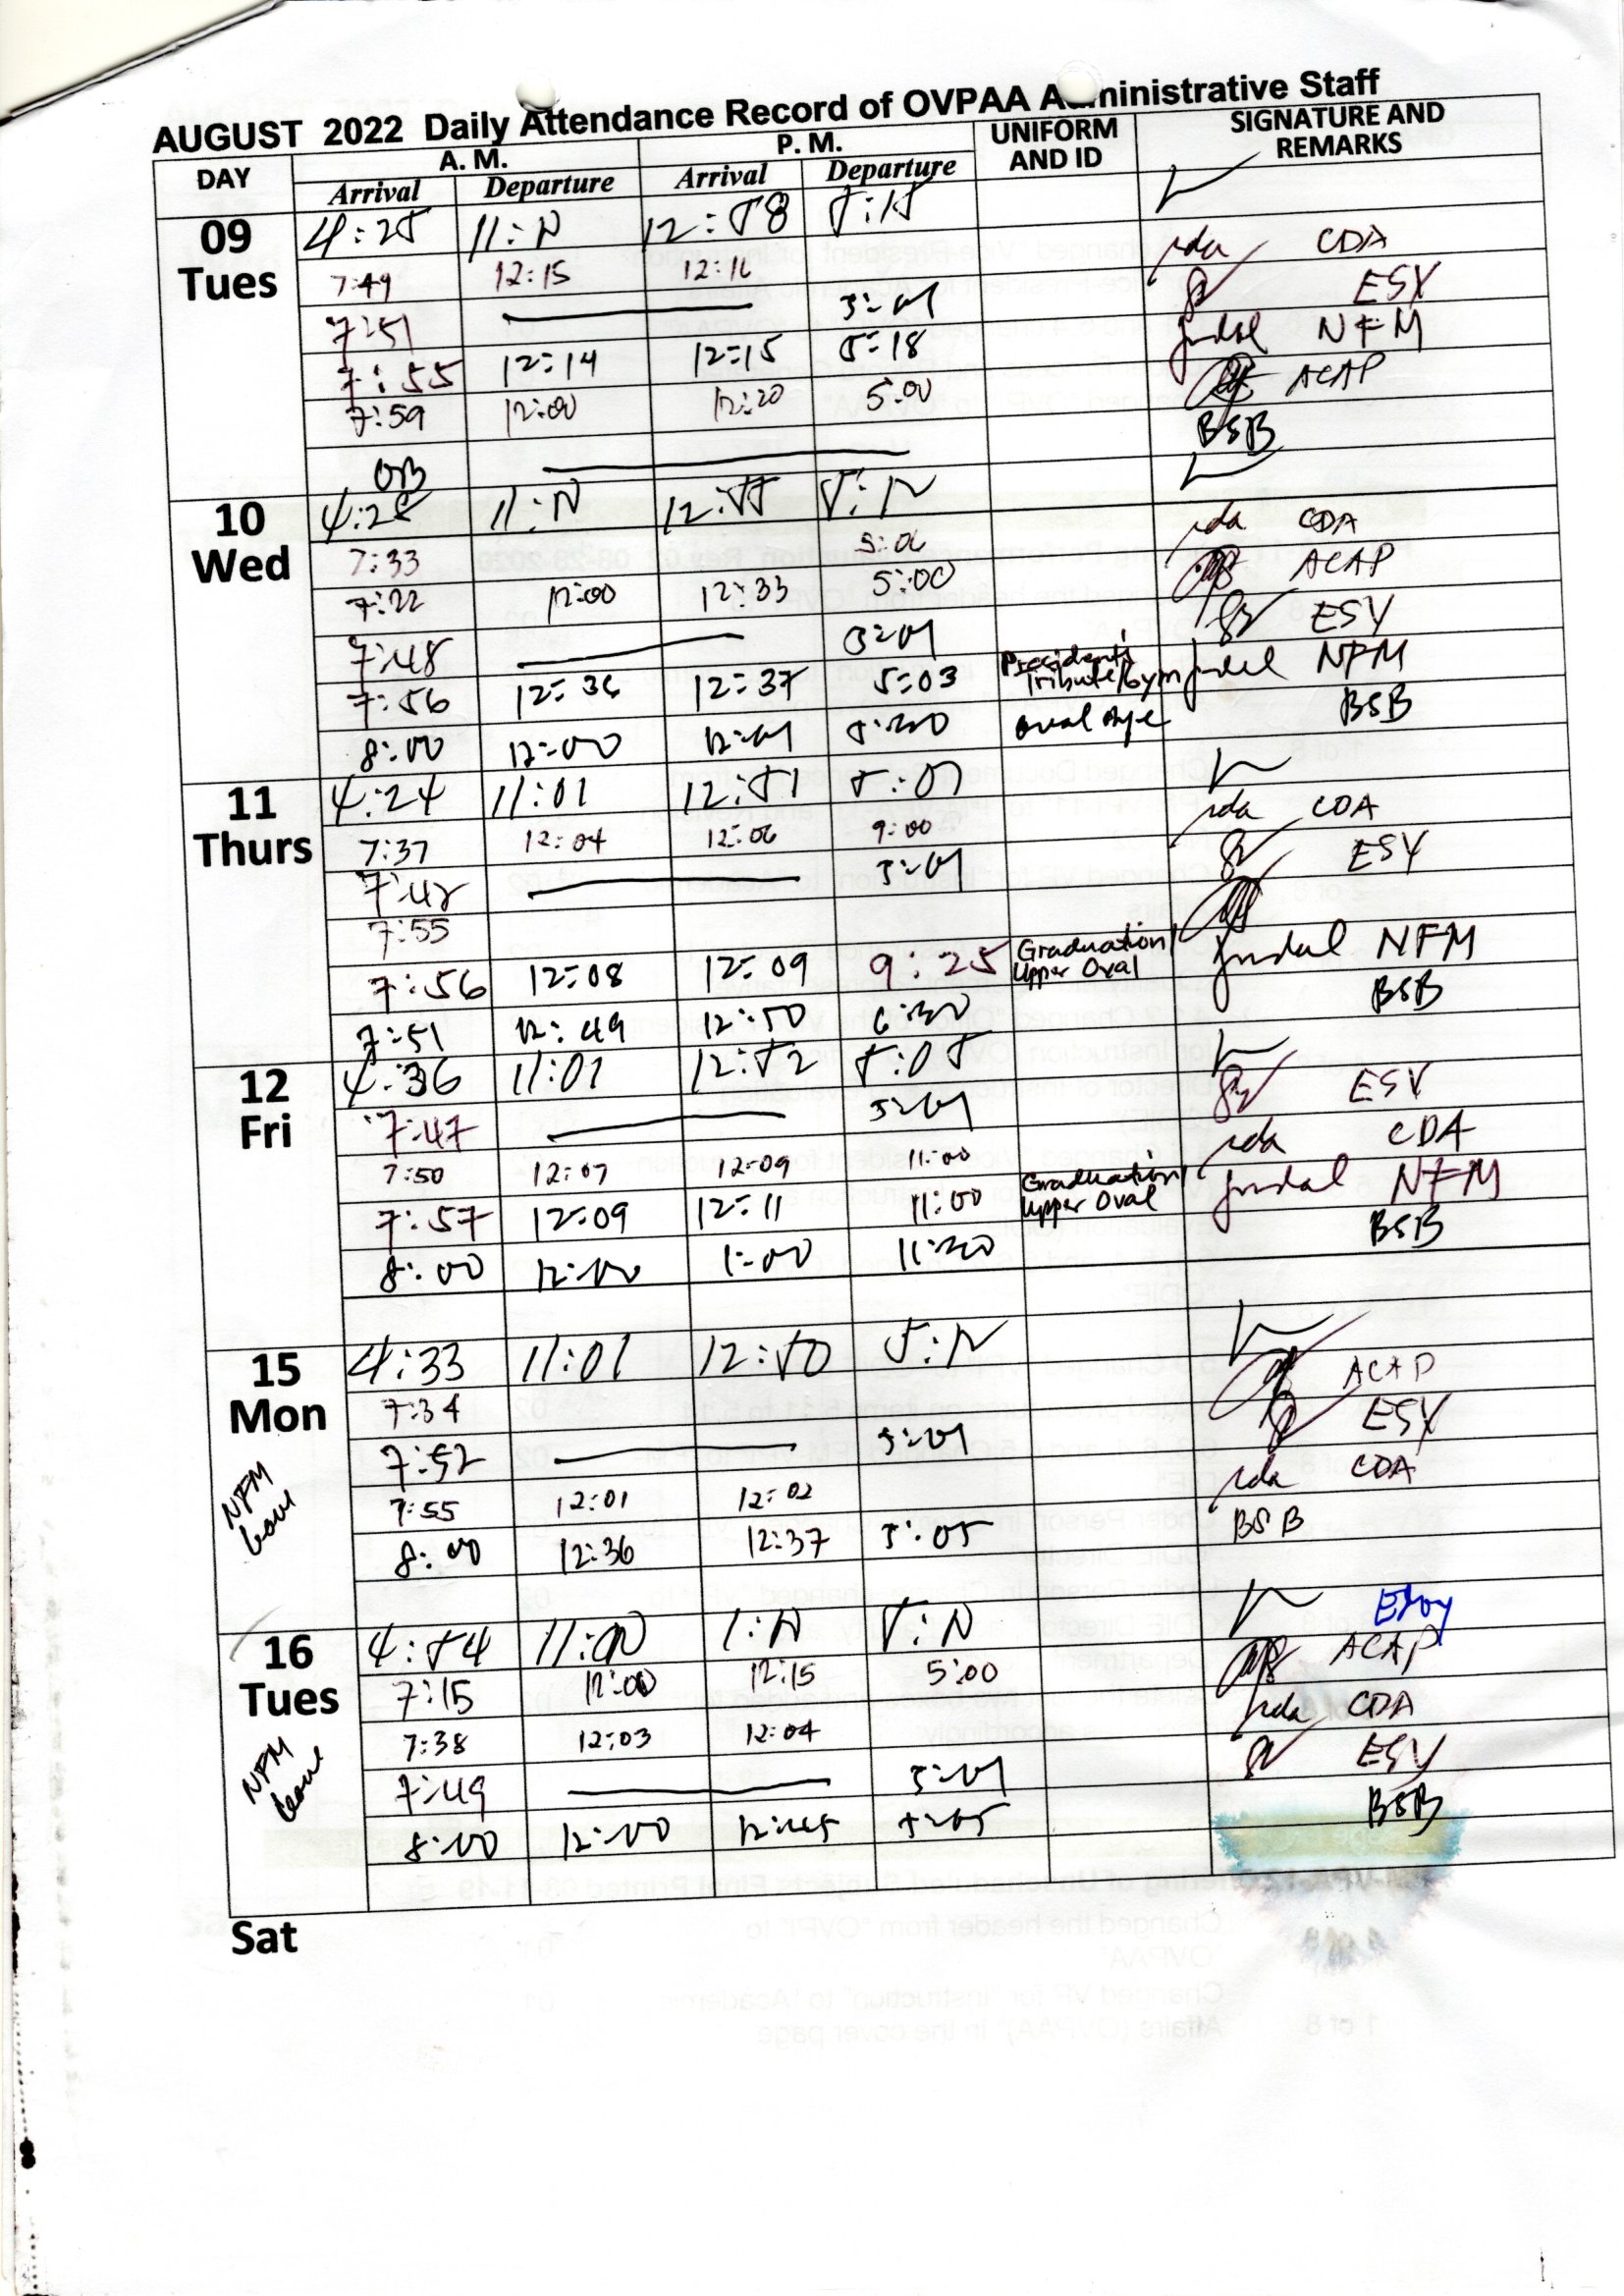 AUGUST 2022 Daily Attendance Record of OVPAA Administrative Staff
DAY A. M. P. M. UNIFORM AND ID SIGNATURE AND REMARKS
Arrival Departure Arrival Departure
09 Tues
4:25 12:58
7:49 12:15 12:16 CDA
7:51 ESY
7:55 12:14 12:15 5:18 NFM
7:59 12:00 12:20 5:00 ACAP
OB BSB
10 Wed
4:28 12:55
7:33 5:06 CDA
7:22 12:00 12:33 5:00 ACAP
7:48 5:01 ESY
7:56 12:36 12:37 5:03 President's Tribute/Gym NFM
8:00 12:00 12:01 5:30 Oval BSB
11 Thurs
4:24 11:01 12:51 5:01
7:37 12:04 12:06 9:00 CDA
7:48 5:01 ESY
7:55
7:56 12:08 12:09 9:25 Graduation/ Upper Oval NFM
7:51 12:49 12:50 6:30 BSB
12 Fri
4:36 11:01 12:52 5:05
7:47 5:01 ESY
7:50 12:07 12:09 11:00 CDA
7:57 12:09 12:11 11:00 Graduation/ Upper Oval NFM
8:00 12:00 1:00 11:30 BSB
15 Mon
NFM leave
4:33 11:01 12:50
7:34 ACAP
7:52 5:01 ESY
7:55 12:01 12:02 CDA
8:00 12:36 12:37 5:05 BSB
16 Tues
NFM leave
4:54 11:00
7:15 12:00 12:15 5:00 ACAP
7:38 12:03 12:04 CDA
7:49 5:01 ESY
8:00 12:00 12:45 5:05 BSB
Sat